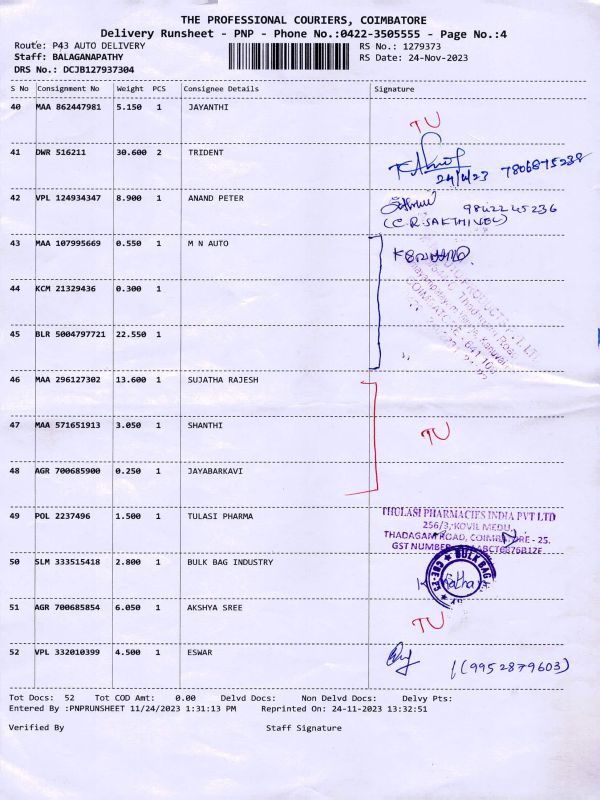 THE PROFESSIONAL COURIERS, COIMBATORE
Delivery Runsheet - PNP - Phone No.:0422-3505555 - Page No.:4
Route: P43 AUTO DELIVERY RS No.: 1279373
Staff: BALAGANAPATHY RS Date: 24-Nov-2023
DRS No.: DCJB127937304
S No Consignment No Weight PCS Consignee Details Signature
40 MAA 862447981 5.150 1 JAYANTHI
TU
41 DWR 516211 30.600 2 TRIDENT
24/11/23 7806875238
42 VPL 124934347 8.900 1 ANAND PETER
9842245236
(C.R.SAKTHIVEL)
43 MAA 107995669 0.550 1 M N AUTO
44 KCM 21329436 0.300 1
45 BLR 5004797721 22.550 1
46 MAA 296127302 13.600 1 SUJATHA RAJESH
47 MAA 571651913 3.050 1 SHANTHI
TU
48 AGR 700685900 0.250 1 JAYABARKAVI
49 POL 2237496 1.500 1 TULASI PHARMA
THULASI PHARMACIES INDIA PVT LTD
256/3, KOVIL MEDU,
THADAGAM ROAD, COIMBATORE - 25.
GST NUMBER
50 SLM 333515418 2.800 1 BULK BAG INDUSTRY
BULK BAG
CBE-25
51 AGR 700685854 6.050 1 AKSHYA SREE
TU
52 VPL 332010399 4.500 1 ESWAR
(9952879603)
Tot Docs: 52 Tot COD Amt: 0.00 Delvd Docs: Non Delvd Docs: Delvy Pts:
Entered By :PNPRUNSHEET 11/24/2023 1:31:13 PM Reprinted On: 24-11-2023 13:32:51
Verified By Staff Signature